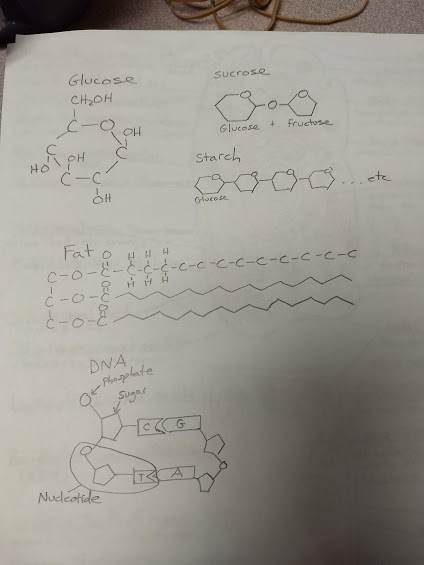 Glucose
CH₂OH
C O
OH
C C
HO OH
C C
OH
sucrose
O O O
Glucose + fructose
Starch
O O O O .... etc
Glucose
Fat
O H H H
C-O-C-C-C-C-C-C-C-C-C-C-C-C-C-C
H H H
O
C-O-C
O
C-O-C
DNA
Phosphate
Sugar
C G
T A
Nucleotide